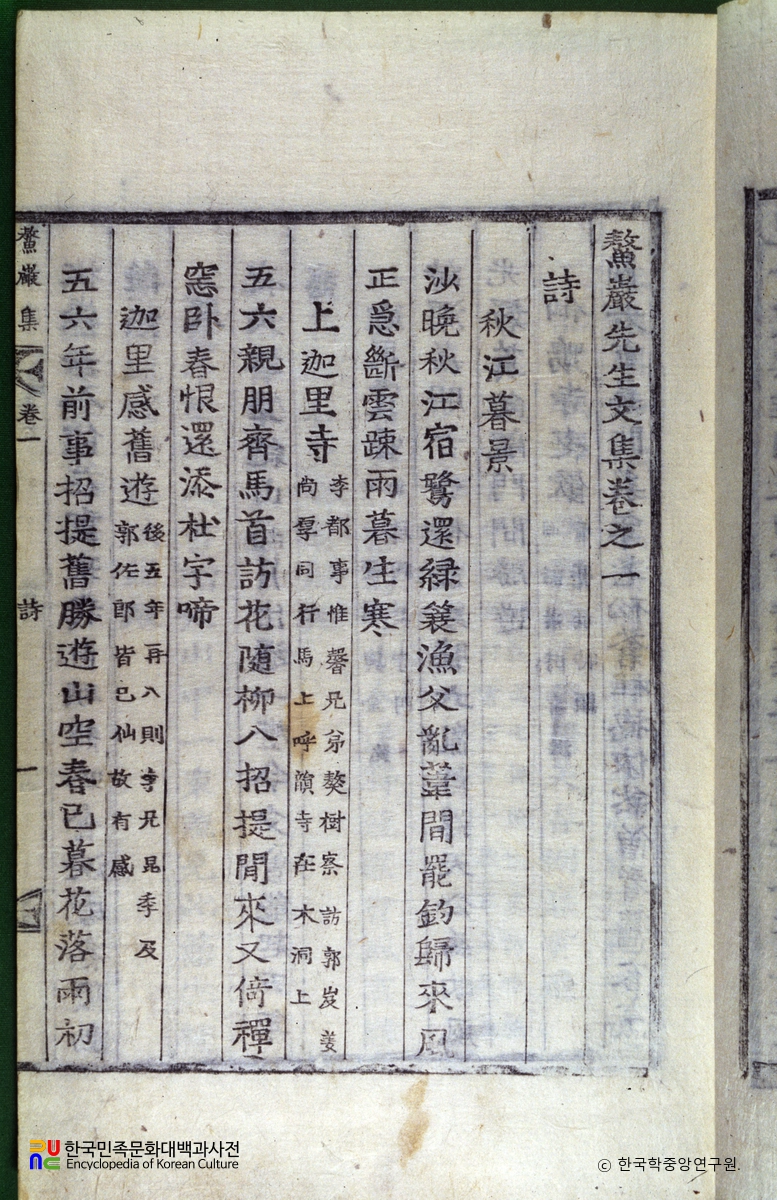 鰲巖先生文集卷之一
詩
秋江暮景
沙晚秋江宿鷺還綠簑漁父亂葦間罷釣歸來風
正急斷雲踈雨暮生寒
上迦里寺
李都事惟馨兄弟獒樹察訪郭岌姜
尚厚同行馬上呼韻寺在木洞上
五六親朋齊馬首訪花隨柳入招提閒來又倚禪
窓臥春恨還添杜宇啼
迦里感舊遊
後五年再入則李兄昆季及
郭佐郎皆已仙故有感
五六年前事招提舊勝遊山空春已暮花落雨初
鰲巖集
卷一
詩
一
한국민족문화대백과사전
Encyclopedia of Korean Culture
ⓒ 한국학중앙연구원.